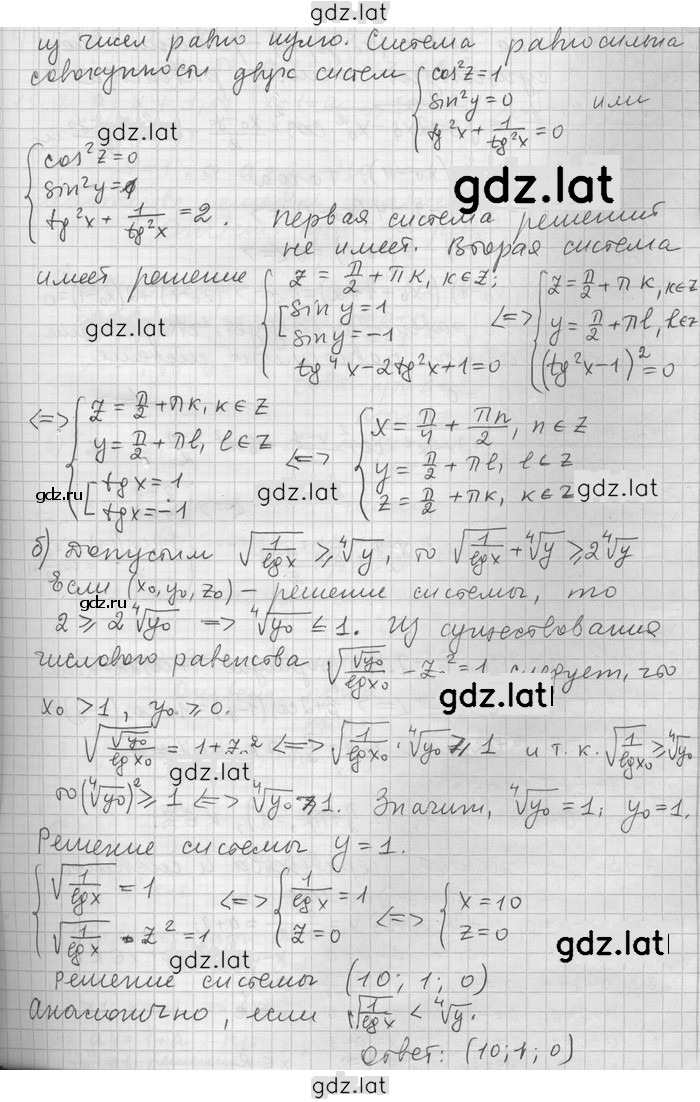 gdz.lat
из чисел равно нулю. Система равносильна
совокупности двух систем { cos²z=1
sin²y=0 или
tg²x + 1/tg²x = 0
gdz.lat
gdz.lat
{ cos²z=0
sin²y=1
tg²x + 1/tg²x = 2. Первая система решений
не имеет. Вторая система
имеет решение { z = π/2 + πk, k∈Z; ⇔ { z = π/2 + πk, k∈Z
[ sin y = 1
sin y = -1 y = π/2 + πl, l∈Z
tg⁴x - 2tg²x + 1 = 0 (tg²x - 1)² = 0
gdz.lat
⇔ { z = π/2 + πk, k∈Z
y = π/2 + πl, l∈Z
[ tg x = 1
tg x = -1 ⇔ { x = π/4 + πn/2, n∈Z
y = π/2 + πl, l∈Z
z = π/2 + πk, k∈Z
gdz.ru
gdz.lat
gdz.lat
б) Допустим √(1/lg x) ≥ ⁴√y, то √(1/lg x) + ⁴√y ≥ 2⁴√y
Если (x₀, y₀, z₀) – решение системы, то
gdz.ru
2 ≥ 2⁴√y₀ ⇒ ⁴√y₀ ≤ 1. Из существования
числового равенства √(√y₀/lg x₀) - z₀² = 1 следует, что
gdz.lat
x₀ > 1, y₀ ≥ 0.
√(√y₀/lg x₀) = 1 + z₀² ⇔ √(1/lg x₀) · ⁴√y₀ ≥ 1 и т.к. √(1/lg x₀) ≥ ⁴√y₀
gdz.lat
то (⁴√y₀)² ≥ 1 ⇔ ⁴√y₀ ≥ 1. Значит, ⁴√y₀ = 1; y₀ = 1.
Решение системы y = 1.
{ √(1/lg x) = 1
√(1/lg x) - z² = 1 ⇔ { 1/lg x = 1
z = 0 ⇔ { x = 10
z = 0
gdz.lat
gdz.lat
Решение системы (10; 1; 0)
Аналогично, если √(1/lg x) < ⁴√y.
Ответ: (10; 1; 0)
gdz.lat